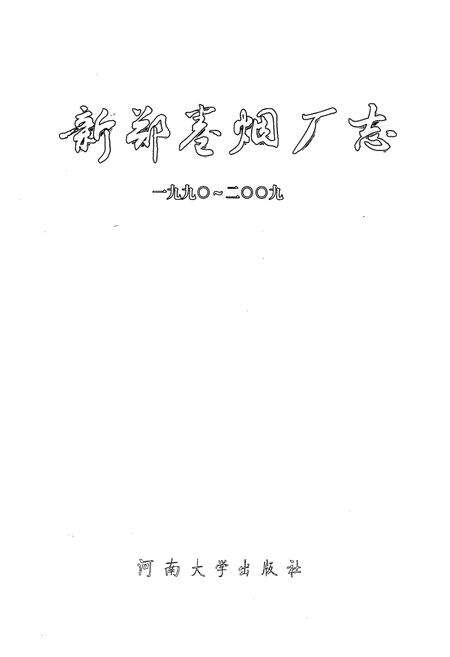 新郑卷烟厂志
一九九〇~二〇〇九
河南大学出版社